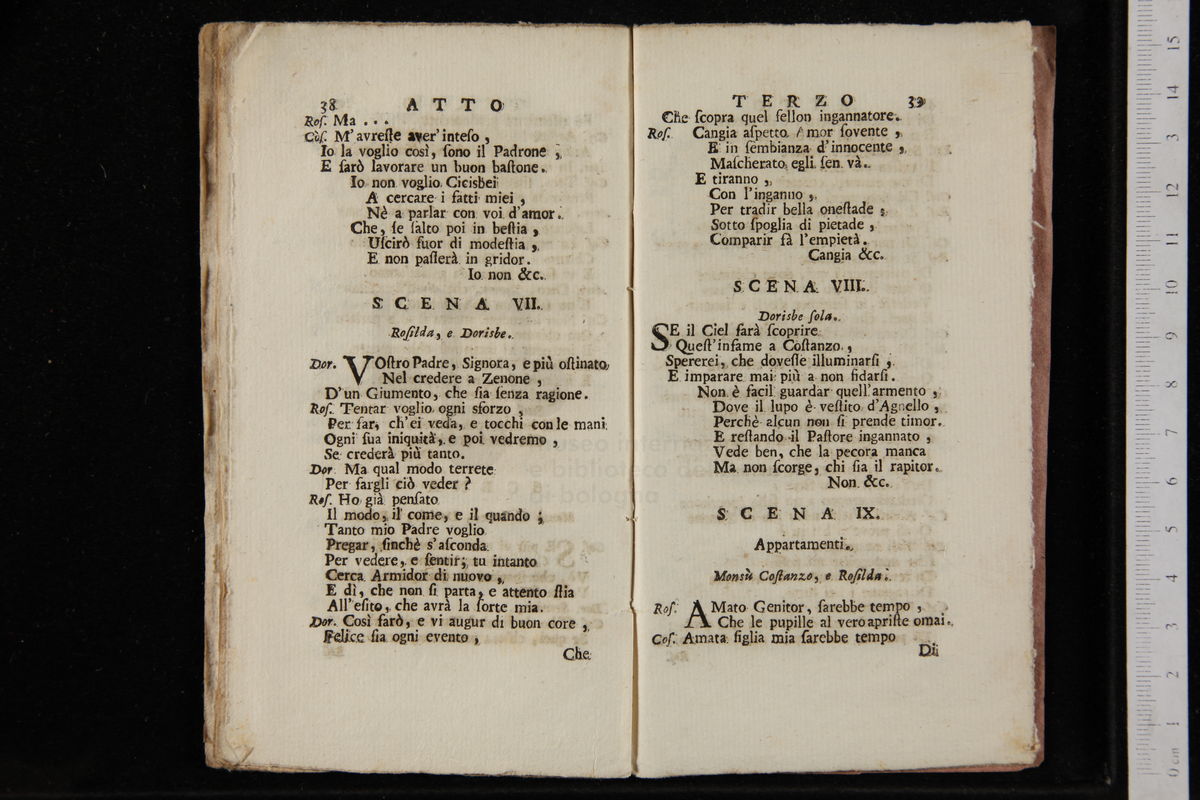 38 ATTO
Roſ. Ma . . .
Coſ. M'avreſte aver'inteſo ,
Io la voglio così, ſono il Padrone ,
E farò lavorare un buon baſtone.
Io non voglio Cicisbei
A cercare i fatti miei ,
Nè a parlar con voi d'amor.
Che, ſe ſalto poi in beſtia ,
Uſcirò fuor di modeſtia ,
E non paſſerà in gridor.
Io non &c.
SCENA VII.
Roſilda, e Dorisbe.
Dor. VOſtro Padre, Signora, e più oſtinato
Nel credere a Zenone ,
D'un Giumento, che ſia ſenza ragione.
Roſ. Tentar voglio ogni sforzo ,
Per far, ch'ei veda, e tocchi con le mani
Ogni ſua iniquità, e poi vedremo ,
Se crederà più tanto.
Dor Ma qual modo terrete
Per fargli ciò veder ?
Roſ. Ho già penſato
Il modo, il come, e il quando ;
Tanto mio Padre voglio
Pregar, finchè s'aſconda
Per vedere, e ſentir; tu intanto
Cerca Armidor di nuovo ,
E dì, che non ſi parta, e attento ſtia
All'eſito, che avrà la ſorte mia.
Dor. Così farò, e vi augur di buon core ,
Felice ſia ogni evento ,
Che
TERZO 39
Che ſcopra quel fellon ingannatore.
Roſ. Cangia aſpetto Amor ſovente ,
E in ſembianza d'innocente ,
Maſcherato egli ſen và.
E tiranno ,
Con l'inganno ,
Per tradir bella oneſtade ;
Sotto ſpoglia di pietade ,
Comparir fà l'empietà.
Cangia &c.
SCENA VIII.
Dorisbe ſola.
SE il Ciel farà ſcoprire
Queſt'infame a Coſtanzo ,
Spererei, che doveſſe illuminarſi ,
E imparare mai più a non fidarſi.
Non è facil guardar quell'armento ,
Dove il lupo è veſtito d'Agnello ,
Perchè alcun non ſi prende timor.
E reſtando il Paſtore ingannato ,
Vede ben, che la pecora manca
Ma non ſcorge, chi ſia il rapitor.
Non &c.
SCENA IX.
Appartamenti.
Monsù Coſtanzo, e Roſilda.
Roſ. AMato Genitor, ſarebbe tempo ,
Che le pupille al vero apriſte omai.
Coſ. Amata figlia mia ſarebbe tempo
Di